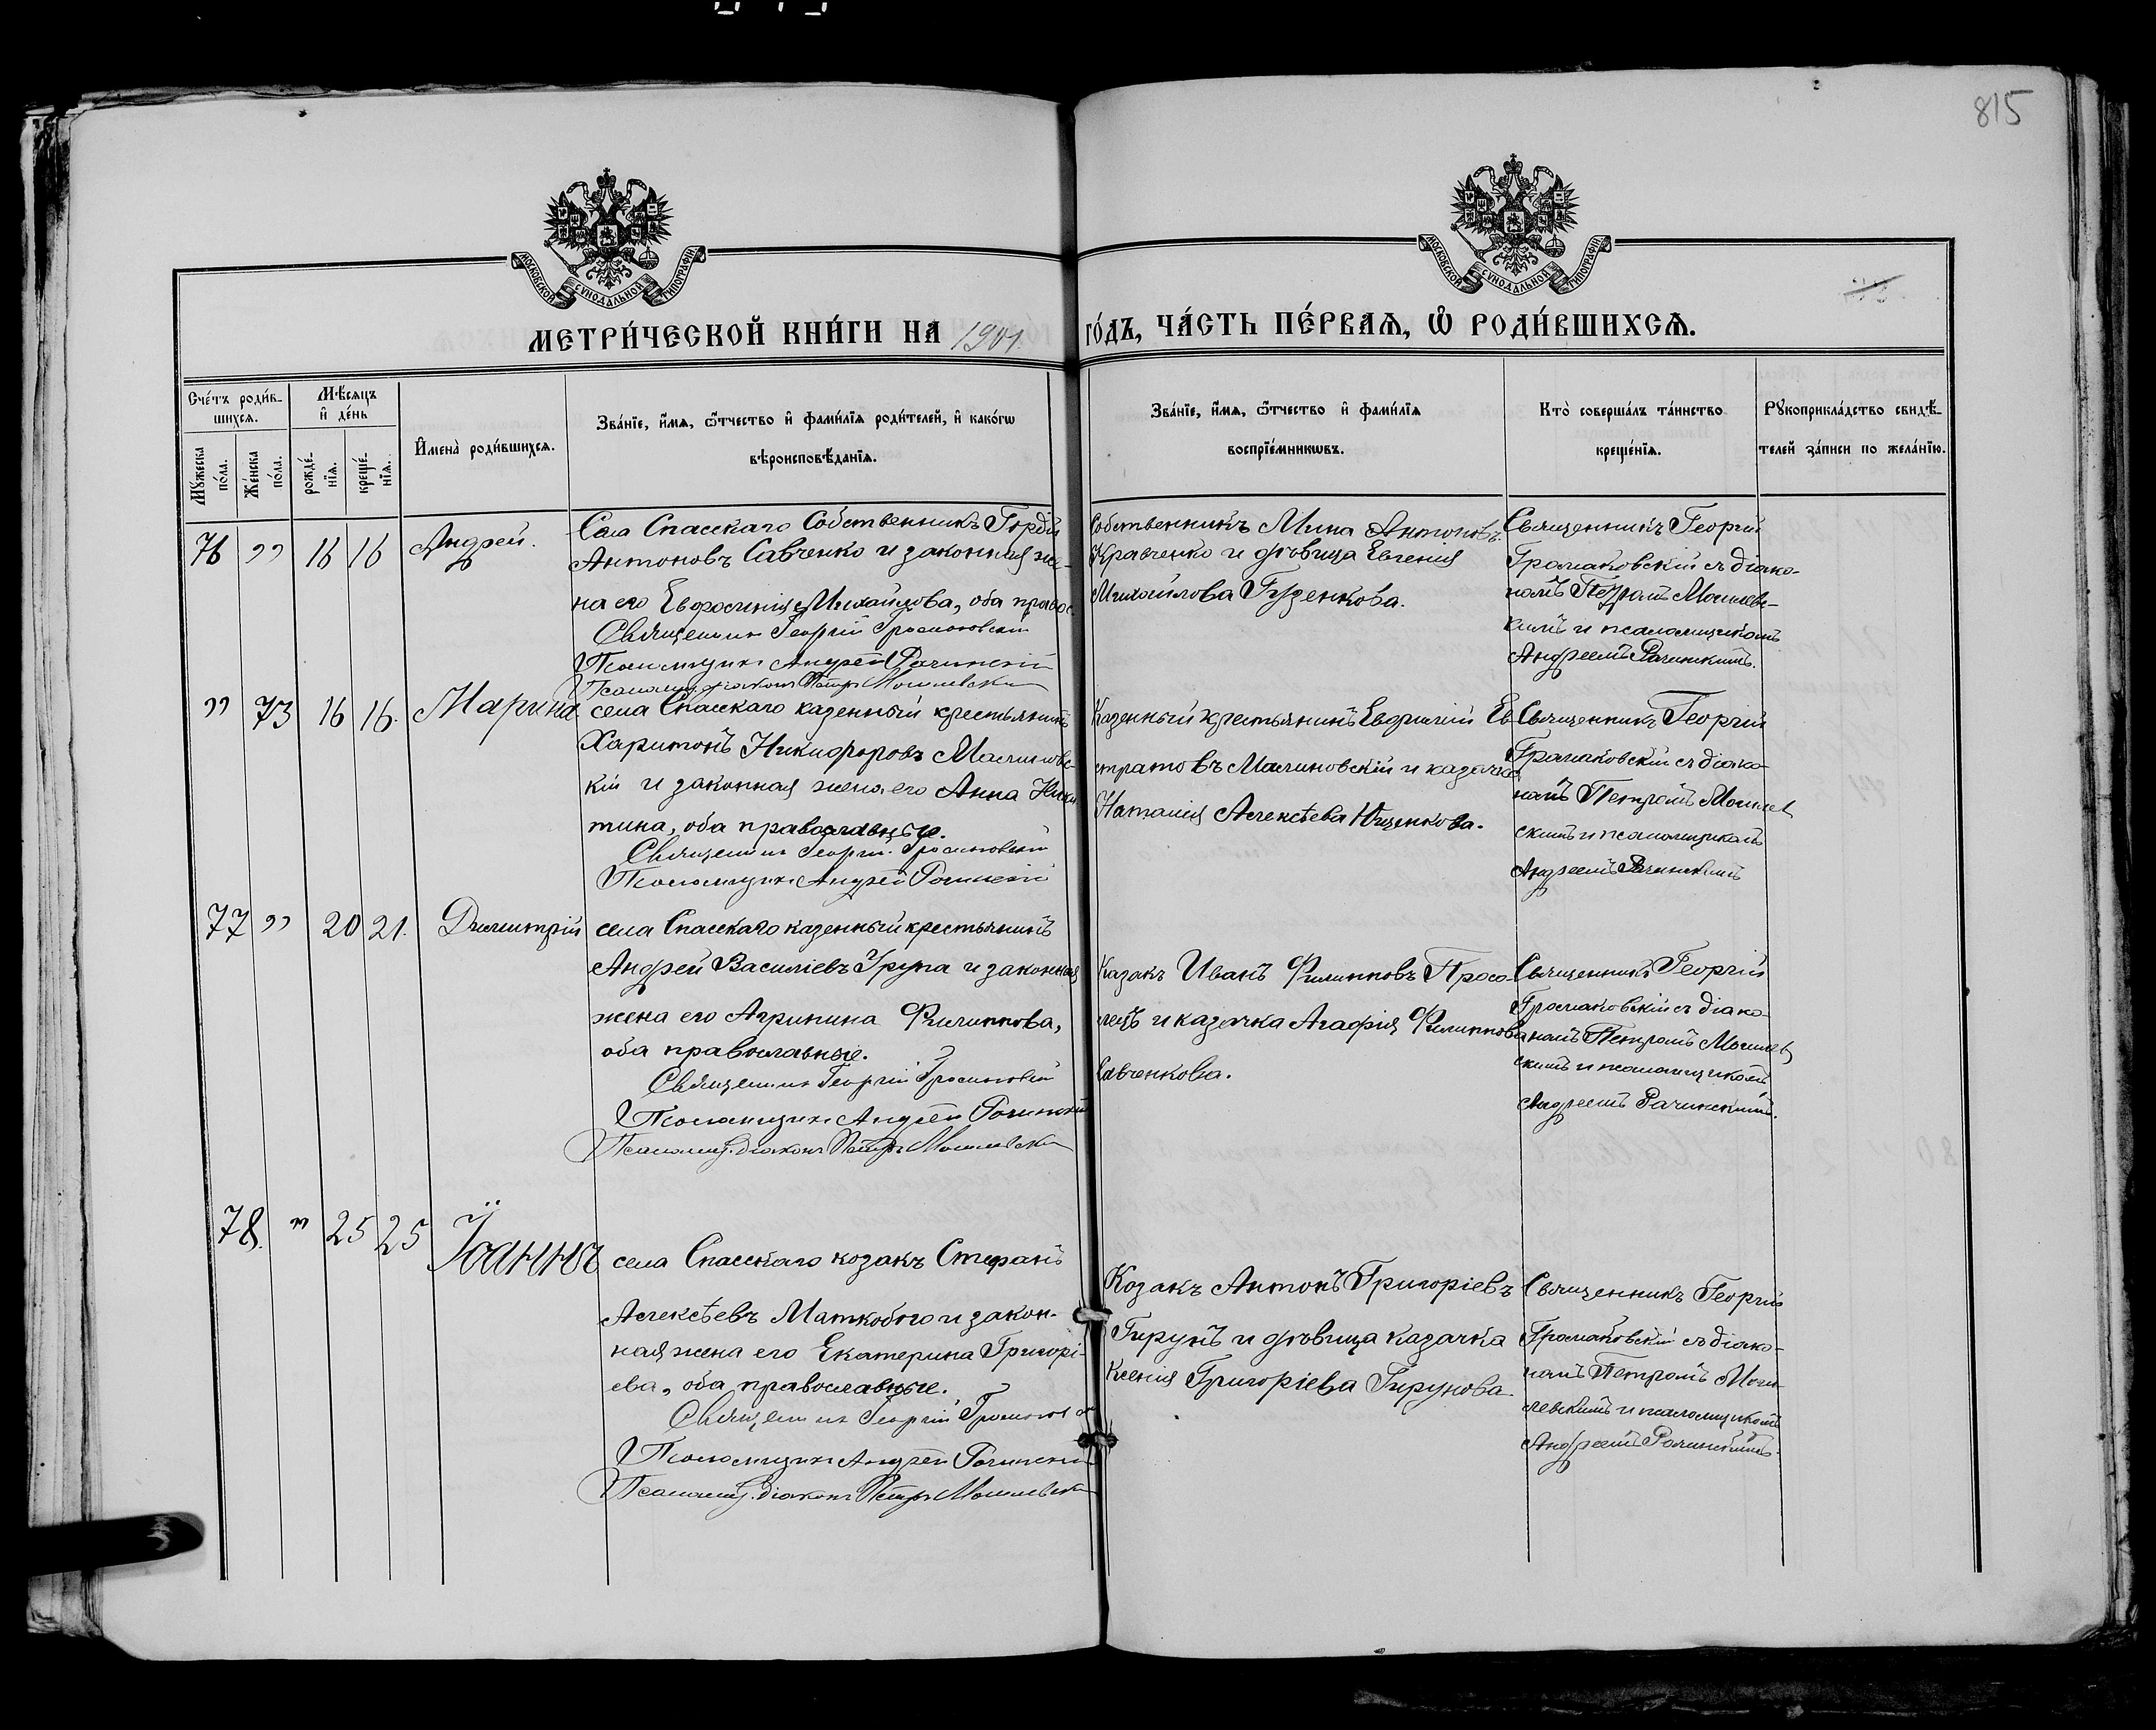 815
МОСКОВСКОЙ СѴНОДАЛЬНОЙ ТИПОГРАФІИ.
МОСКОВСКОЙ СѴНОДАЛЬНОЙ ТИПОГРАФІИ.
МЕТРИ́ЧЕСКОЙ КНИ́ГИ НА 1901. ГО́ДЪ, ЧА́СТЬ ПЕ́РВАѦ, Ѡ РОДИ́ВШИХСѦ.
Сче́тъ роди́в-
шихсѧ.
Мꙋ́жеска по́ла.
Же́нска по́ла.
Мѣ́сѧцъ
и҆ де́нь
рожде́-
нїѧ.
креще́-
нїѧ.
И҆мена̀ роди́вшихсѧ.
Зва́нїе, и҆́мѧ, ѻ҆́тчество и҆ фами́лїѧ роди́телей, и҆ како́гѡ
вѣроисповѣ́данїѧ.
Зва́нїе, и҆́мѧ, ѻ҆́тчество и҆ фами́лїѧ
воспрїе́мникѡвъ.
Кто̀ соверша́лъ та́инство
креще́нїѧ.
Рꙋкоприкла́дство свидѣ́-
телей за́писи по жела́нїю.
76 " 16 16 Андрей.
Села Спасскаго Собственникъ Гордій
Антоновъ Савченко и законная же-
на его Евфросинія Михайлова, оба правос
Священник Георгій Громаковскій
Псаломщик Андрей Рачинскій
Псаломщ. діаконъ Петръ Могилевскій
Собственникъ Мина Антоновъ
Кравченко и дѣвица Евгенія
Михайлова Гузенкова.
Священникъ Георгій
Громаковскій съ діако-
номъ Петромъ Могилев-
скимъ и псаломщикомъ
Андреемъ Рачинскимъ.
" 73 16 16. Марина
села Спасскаго казенный крестьянинъ
Харитонъ Никифоровъ Малиновс-
кій и законная жена его Анна Ники
тина, оба православные.
Священник Георгій Громаковскій
Псаломщик Андрей Рачинскій
Казенный крестьянинъ Евфимій Ев
стратовъ Малиновскій и казачка
Наталія Алексѣева Ищенкова.
Священникъ Георгій
Громаковскій съ діако-
номъ Петромъ Могилев
скимъ и псаломщикомъ
Андреемъ Рачинскимъ
77 " 20 21. Димитрій
села Спасскаго казенный крестьянинъ
Андрей Василіевъ Крупа и законная
жена его Агрипина Филиппова,
оба православные.
Священник Георгій Громаковскій
Псаломщик Андрей Рачинскій
Псаломщ. діаконъ Петръ Могилевскій
Казакъ Иванъ Филипповъ Просо-
лецъ и казачка Агафія Филиппова
Савченкова.
Священникъ Георгій
Громаковскій съ діако-
номъ Петромъ Могилев
скимъ и псаломщикомъ
Андреемъ Рачинскимъ.
78. " 25 25 Іоаннъ
села Спасскаго козакъ Стефанъ
Алексѣевъ Маткобого и закон-
ная жена его Екатерина Григорі-
ева, оба православные.
Священник Георгій Громаковск
Псаломщик Андрей Рачинскій
Псаломщ. діаконъ Петръ Могилевск
Козакъ Антонъ Григоріевъ
Гирунъ и дѣвица казачка
Ксенія Григоріева Гирунова.
Священникъ Георгій
Громаковскій съ діако-
номъ Петромъ Моги-
левскимъ и псаломщикомъ
Андреемъ Рачинскимъ.